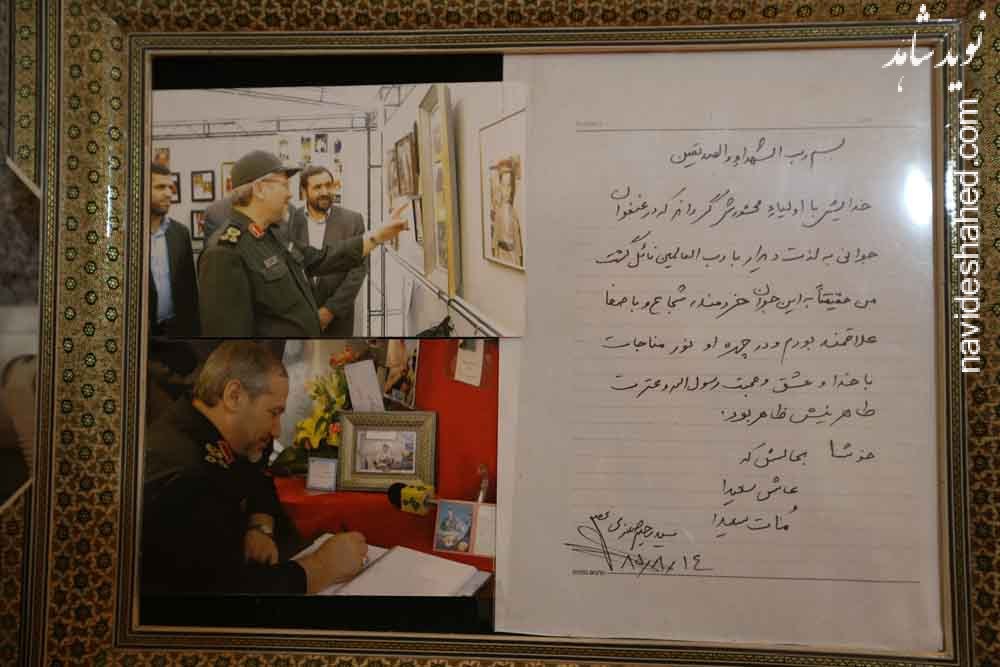 نوید شاهد
navideshahed.com
بسم رب الشهداء والصدیقین
خدایش با اولیاءِ محشورش گرداند که در عنفوان
جوانی به لذت دیدار با رب العالمین نائل گشت
من حقیقتاً به این جوان خردمند، شجاع و باصفا
علاقمند بودم و در چهره او نور مناجات
با خدا و عشق و محبت رسول الله و عترت
طاهرینش ظاهر بود.
خوشا بحالش که
عاش سعیدا
و مات سعیدا
سید رحیم صفوی
۸۵/۸/۱۴